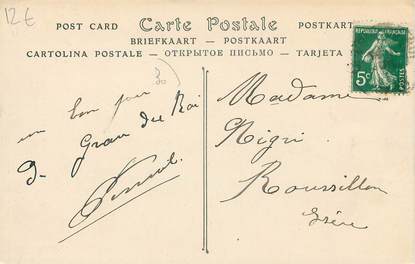 12€
POST CARD Carte Postale POSTKART
BRIEFKAART — POSTKAART
CARTOLINA POSTALE — ОТКРЫТОЕ ПИСЬМО — TARJETA
REPUBLIQUE FRANÇAISE
5c
POSTES
un bon jour
Grau du Roi
Madame
Nigri
Roussillon
Isère